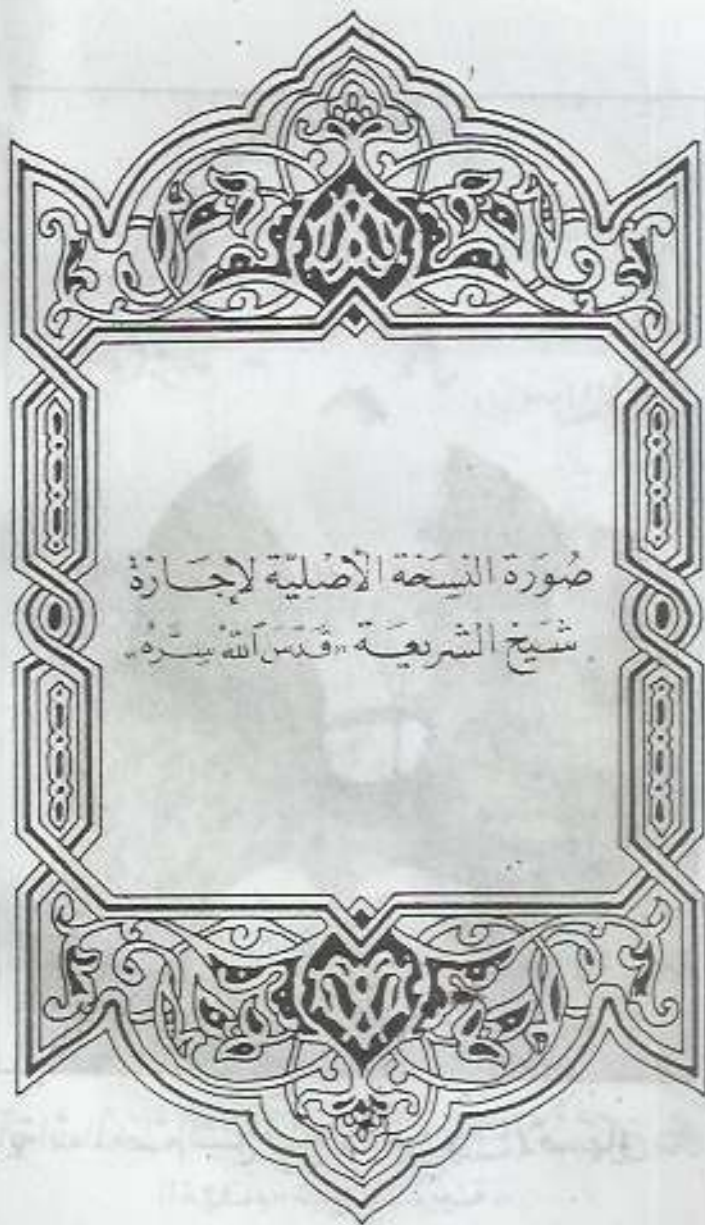 صُورَة النُسخَة الأصْليَّة لإجَازَة
شَيخ الشريعَة «قَدَّسَ اللهُ سِرَّه»